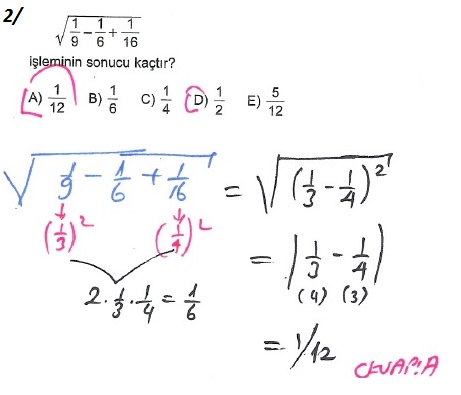 2/
√(1/9 − 1/6 + 1/16)
işleminin sonucu kaçtır?
A) 1/12 B) 1/6 C) 1/4 D) 1/2 E) 5/12
√(1/9 − 1/6 + 1/16) = √((1/3 − 1/4)²)
(1/3)² (1/4)²
= |1/3 − 1/4|
(4) (3)
2 · 1/3 · 1/4 = 1/6
= 1/12
CEVAP:A